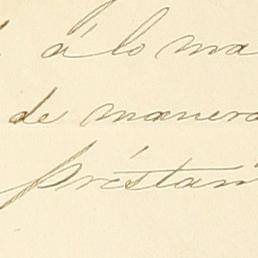 á lo ma
de manera
préstam